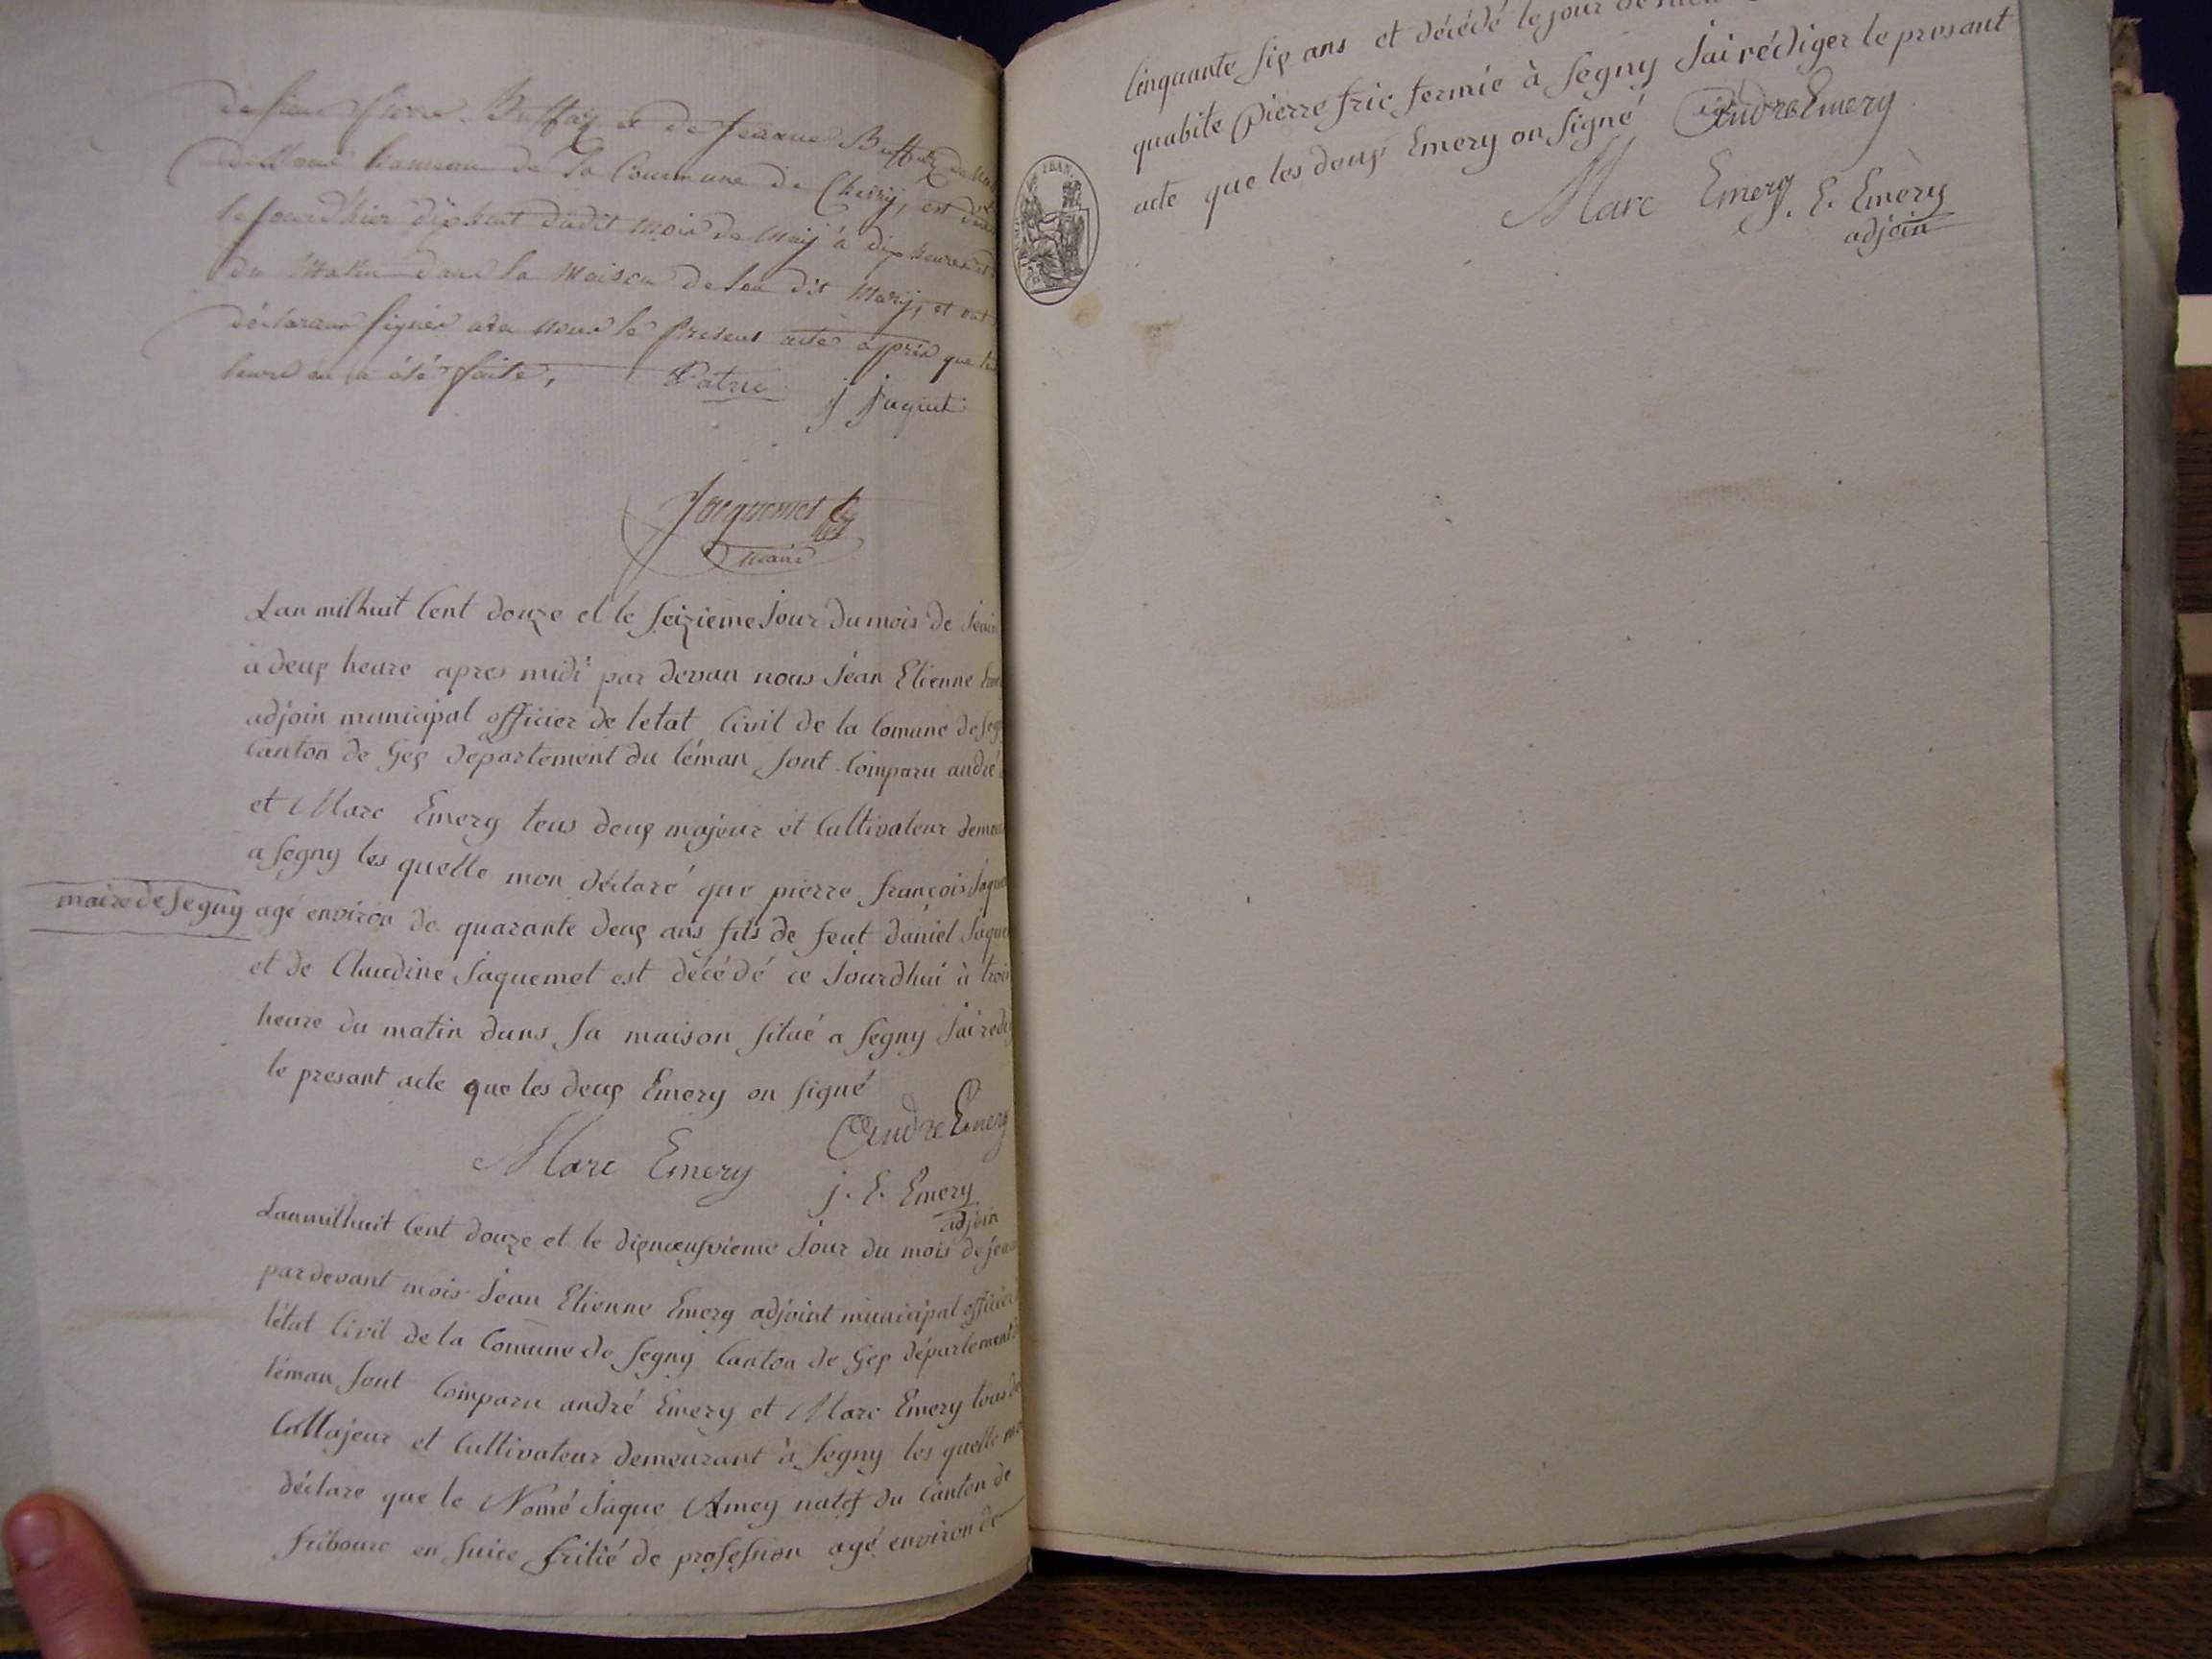 de Jeanne Buffaz
hameau de la Commune de Chevry, est
dudit mois de may à dix heures
du Matin dans la Maison de son dit Mary, et ont
déclarans signés avec nous le Present acte après que
leure en a été faite,
Patrie
j Jaquet
Jacquemet
maire
Lan mil huit Cent douze et le Seizieme Jour du mois de
a deux heure apres midi par devan nous Jéan Etienne
adjoin municipal officier de letat Civil de la Comune de
Canton de Gex département du léman sont Comparu andré
et Marc Emery tous deux majeur et Cultivateur
a Segny les quelle mon déclaré que pierre françois
maire de Segny
agé environ de quarante deux ans fils de feut daniel
et de Claudine Jaquemet est décédé ce Jourdhui à trois
heure du matin dans sa maison situé a Segny Jai
le presant acte que les deux Emery on signé
André Emery
Marc Emery
j. E. Emery
adjoin
Lan mil huit Cent douze et le dixnœufvieme Jour du mois de
par devant mois Jean Etienne Emery adjoint municipal officier
létat Civil de la Comune de Segny Canton de Gex département
léman sont Comparu andré Emery et Marc Emery tous
Majeur et Cultivateur demeurant à Segny les quelle
déclare que le Nomé Jaque Amey natif du Canton de
fribourc en Suice fritié de profession agé environ de
Cinquante six ans et décédé le jour
quabite Pierre fric fermié à Segny Jai rédiger le presant
acte que les deux Emery on signé
André Emery
Marc Emery
E. Emery
adjoin